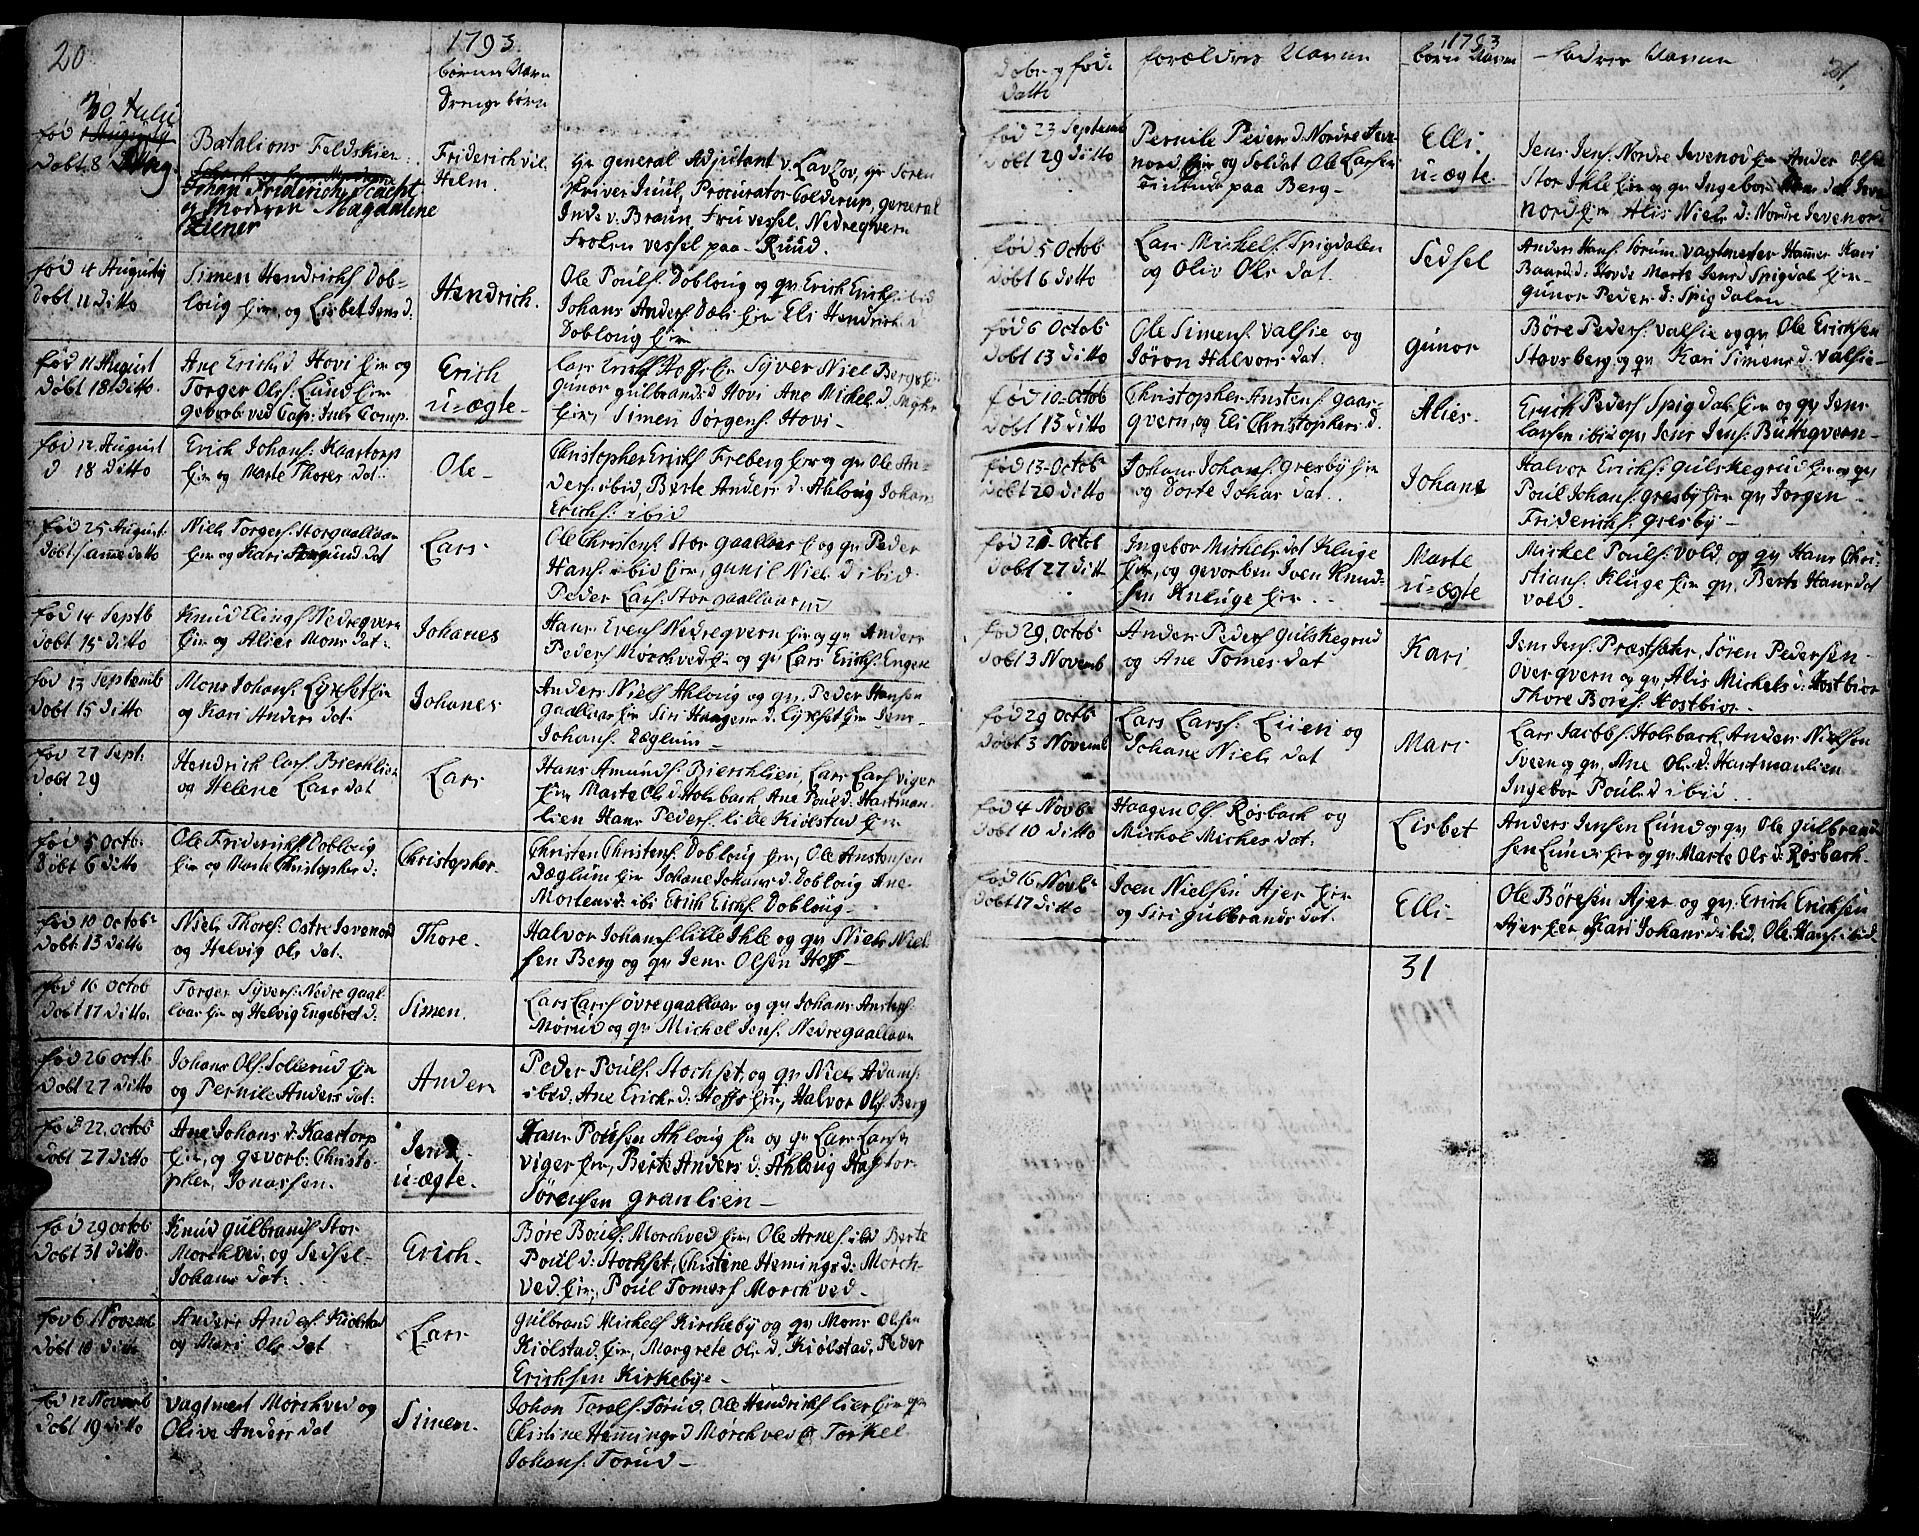 20
1793.
børnes Navn
Drengebørn
30 Julii
fød 1 Augusty
Døbt 8 Aug.
Batalions Feldskier
Johan Friderich Scacht
og Moderen Magdaline
Ziener
Friderich vil
Helm.
Hr general Adjutant v. Lavzov, Hr Sören
skriver Juul, Procurator Colderup, general
Inde v. Braun, Fru vessel, Nedreqvern
Frølen vessel paa Ruud.
fød 4 Augusty
Døbt 11 ditto
Simen Hendrichs. Dob=
loug Eie, og Lisbet Jens d.
Hendrich.
Ole Pouls. Dobloug og qv. Erich Erichs. ibid
Johans Anders. Dæli Eie Eli Hendrichs d.
Dobloug Eie
fød 11 August
døbt 18 ditto
Ane Erichs d. Hovi Eie og
Torger Ols. Lund Eie
gevorb ved Cap. Juls Comp.
Erich
u=ægte
Lars Erichs. Hoffs Eie Syver Niels. Bergs Eie
Gunor gulbrands d. Hovi Ane Michels d.
Eie, Simen Jørgens. Hovi
fød 12 August
d 18 ditto
Erich Johans. Kaatorp
Eie og Marte Thores dat.
Ole
Christopher Erichs. Freberg Eie og qv. Ole An=
ders. ibid, Berte Anders d. Ahloug Johans
Erichs. ibid
fød 25 August
døbt samme datto
Niels Torgers. Storgaallaar
Eie og Kari Amund dat
Lars
Ole Christens. Stor gaallaar E og qv Peder
Hans. ibid Eie, gunil Niels d ibid
Peder Lars. Stor gaallaar
fød 14 Septb
døbt 15 ditto
Knud Elings. Nedreqvern
Eie og Alies Mons dat.
Johanes
Hans Evens. Nedreqvern Eie og qv Anders
Peders. Mørchved Eie og qv Lars Erichs. Engene
fød 13 Septemb
døbt 15 ditto
Mons Johans. Lyxset Eie
og Kari Anders dat.
Johanes
Anders Niels. Ahloug og qv. Peder Hansen
gaallaar Eie Siri Haagens d. Lyxset Eie Jens
Johans. Dæglum
fød 27 Sept.
døbt 29
Hendrich Lars. Bierchlien
og Helene Lars dat
Lars
Hans Amunds. Bierchlien, Lars Lars. viger
Eie, Marte Ols d Holsbach, Ane Pouls d. Hartman=
lien Hans Peders. lille Kiølstad Eie
fød 5 Octob.
Døbt 6 ditto
Ole Friderichs. Dobloug
Eie og Marte Christophers d.
Christopher.
Christen Christens. Dobloug Eie, Ole Anstensen
Dæglum Eie Johane Johans d. Dobloug Ane
Mortens d. ibi Erich Erichs. Dobloug
fød 10 Octob.
døbt 13 ditto
Niels Thores. Østre Jevenord
og Helvig Ols dat.
Thore.
Halvor Johans. lille Ihle og qv Niels Niel
sen Berg og qv. Jens Olsen Hoff
fød 16 Octob
døbt 17 ditto.
Torger Syvers. Nedre gaal=
laar Eie og Helvig Engebret d.
Simen.
Lars Lars. øvre gaallaar og qv. Johans Anstens.
Mørud og qv Michel Jens. Nedregaallaar
fød 26 octb.
døbt 27 ditto
Johans Ols. Sollerud Eie
og Pernile Anders dat.
Anders
Peder Pouls. Stochset, og qv Niels Adams.
ibid, Ane Erichs d. Hoffs Eie, Halvor Ols. Berg
fød 22. octob
døbt 27 ditto
Ane Johans d. Kaatorp
Eie, og gevorb. Christo=
pher, Jonassen.
Jens.
u=ægte.
Hans Poulsen Ahloug Eie og qv Lars Larsen
viger Eie, Berte Anders d. Ahloug Hastor
Sörensen granlien
fød 29 octob
døbt 31 ditto
Knud gulbrands. Stor
Mørchved, og Sedsel
Johans dat.
Erich.
Børe Bouls. Morchved Eie, Ole Arnes. ibid Berte
Poul d. Stochset, Christene Hemings d. Mørch=
ved Eie, Poul Tomes. Morchved.
fød 6 Novemb
døbt 10 ditto
Anders Anders. Kiølstad
og Mari Ols dat
Lars
gulbrand Michels. Kircheby og qv Mons Olsen
Kiølstad Eie, Margrete Ols d. Kiølstad, Peder
Erichsen Kirkebye
fød 12 Novemb
døbt 19 ditto
vagtmest Mørchved og
Olive Anders dat
Simen.
Johan Torals. Torud, Ole Hendrichs. lier Eie qv
Christine Hemings d Mørchved & Torkel
Johans. Torud
1793
21.
døbe og føde
datto
forældres Navne
børns Navne
fadres Navne
fød 23 Septemb
Døbt 29 ditto
Pernile Peders d. Nordre Jeve
nord Eie og Soldat Ole Larsen
paa Berg
Elli
u=ægte.
Jens Jens. Nordre Jevenod Eie Anders Olsen
Stor Ihle Eie og qv Ingebor dat. Jeve
nord Eie Alis Niels d: Nordre Jevenor
fød 5 Octob
døbt 6 ditto
Lars Michels. Spigdalen
og Oliv Ols dat.
Sedsel
Anders Hans. Torum vagtmester Hammer Kari
Baards d. Hovde Marte Jens d Spigdal Eie
gunor Peders d: Spigdalen
fød 6 Octob
døbt 13 ditto
Ole Simens. valsie og
Søron Halvors dat.
gunor
Børe Peders. valsie og qv. Ole Ericksen
Stavsberg og qv Kari Simens d. valsie
fød 10 octob
døbt 13 ditto
Christopher Anstens. gaar=
qvern, og Eli Christophers d.
Alies.
Erich Peders. Spigdal Eie og qv Jens
Larsen ibid og Jens Jens. Butteqvern
fød 13 Octob
døbt 20 ditto
Johans Johans. gresby Eie
og Dorte Johans dat.
Johane
Halvor Erichs. gulskegrud Eie og qv
Poul Johans. gresby Eie qv Jørgen
Friderichs. gresby
fød 21 Octob
døbt 27 ditt
Ingebor Michels dat Kluge
Eie, og gevorben Iven Knud=
sen Knluge Eie
Marte
u=ægte
Michel Pouls. vold, og qv Hans Chri=
stians. Kluge Eie qv Berte Hans dat
vold.
fød 29. Octob
døbt 3 Novemb
Anders Peders. gulskegrud
og Ane Tomes dat
Kari
Jens Jens. Præstsæter, Sören Pedersen
Overqvern og qv Alis Michels d: Kostbior
Thore Bores. Kostbior
fød 29 Octb
døbt 3 Novemb
Lars Lars. Liien og
Johane Niels dat
Mari
Lars Jacobs. Holsbach, Anders Nielsen
Svern og qv. Ane Ols d. Hartmanlien
Ingebor Pouls d ibid
fød 4 Novb.
døbt 10 ditto
Haagen Ols. Rosbach og
Michol Miches dat.
Lisbet
Anders Jensen Lund og qv, Ole gulbrand
sen Lunds Eie og qv Marte Ols d. Røsbach
fød 16 Novb.
døbt 17 ditto
Iven Nielsen Ajer Eie
og Siri gulbrands dat.
Elli
Ole Børesen Ajer og qv Erich Ericksen
Ajer Eie Kari Johans d ibid. Ole Hans. ibid
31